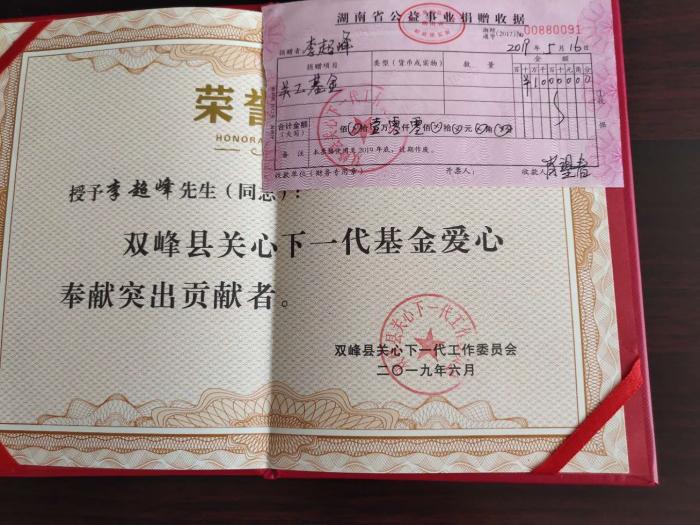 湖南省公益事业捐赠收据
湘财通字(2017)№ 00880091
捐赠者 李超峰 2019年5月16日
捐赠项目 类型(货币或实物) 数量 金额
百十万千百十元角分
关工基金 ¥1000000
合计金额(大写) 佰ⓧ拾壹万零仟零佰ⓧ拾ⓧ元ⓧ角ⓧ分
备注 本票据使用至2019年底,过期作废。
收款单位(财务专用章) 开票人: 收款人:
荣誉
HONORA
授予李超峰先生(同志):
双峰县关心下一代基金爱心
奉献突出贡献者。
双峰县关心下一代工作委员会
二〇一九年六月